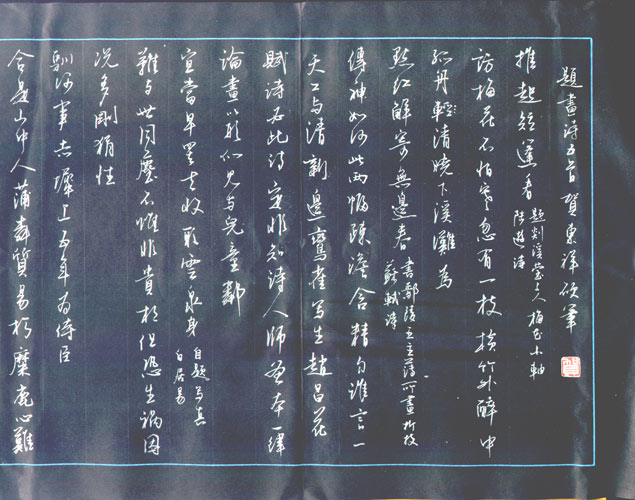 合是山中人蒲柳質易朽麋鹿心難
馴何事赤墀上五年為侍臣
況多剛狷性
難与世同塵不惟非貴相但恐生禍因
宜當早罷去收取雲泉身
自題寫真
白居易
論畫以形似見与兒童鄰
賦詩必此詩定非知詩人師畫本一律
天工与清新邊鸞雀寫生趙昌花
傳神如何此兩幅疎澹含精勻誰言一
點紅解寄無邊春
書鄢陵王主簿所畫折枝
蘇軾詩
孤舟輕清曉下溪灘為
訪梅花不怕寒忽有一枝橫竹外醉中
推起短篷看
題剡溪瑩上人梅花小軸
陸游詩
題畫詩五首賀東譯硬筆